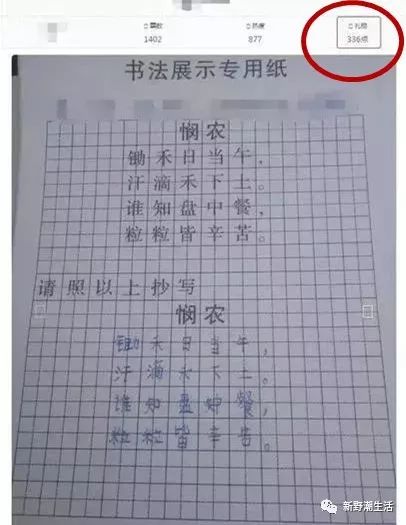 票数 热度 礼物
1402 877 336点
书法展示专用纸
悯农
锄禾日当午,
汗滴禾下土。
谁知盘中餐,
粒粒皆辛苦。
请照以上抄写
悯农
锄禾日当午,
汗滴禾下土。
谁知盘中餐,
粒粒皆辛苦。
新野潮生活